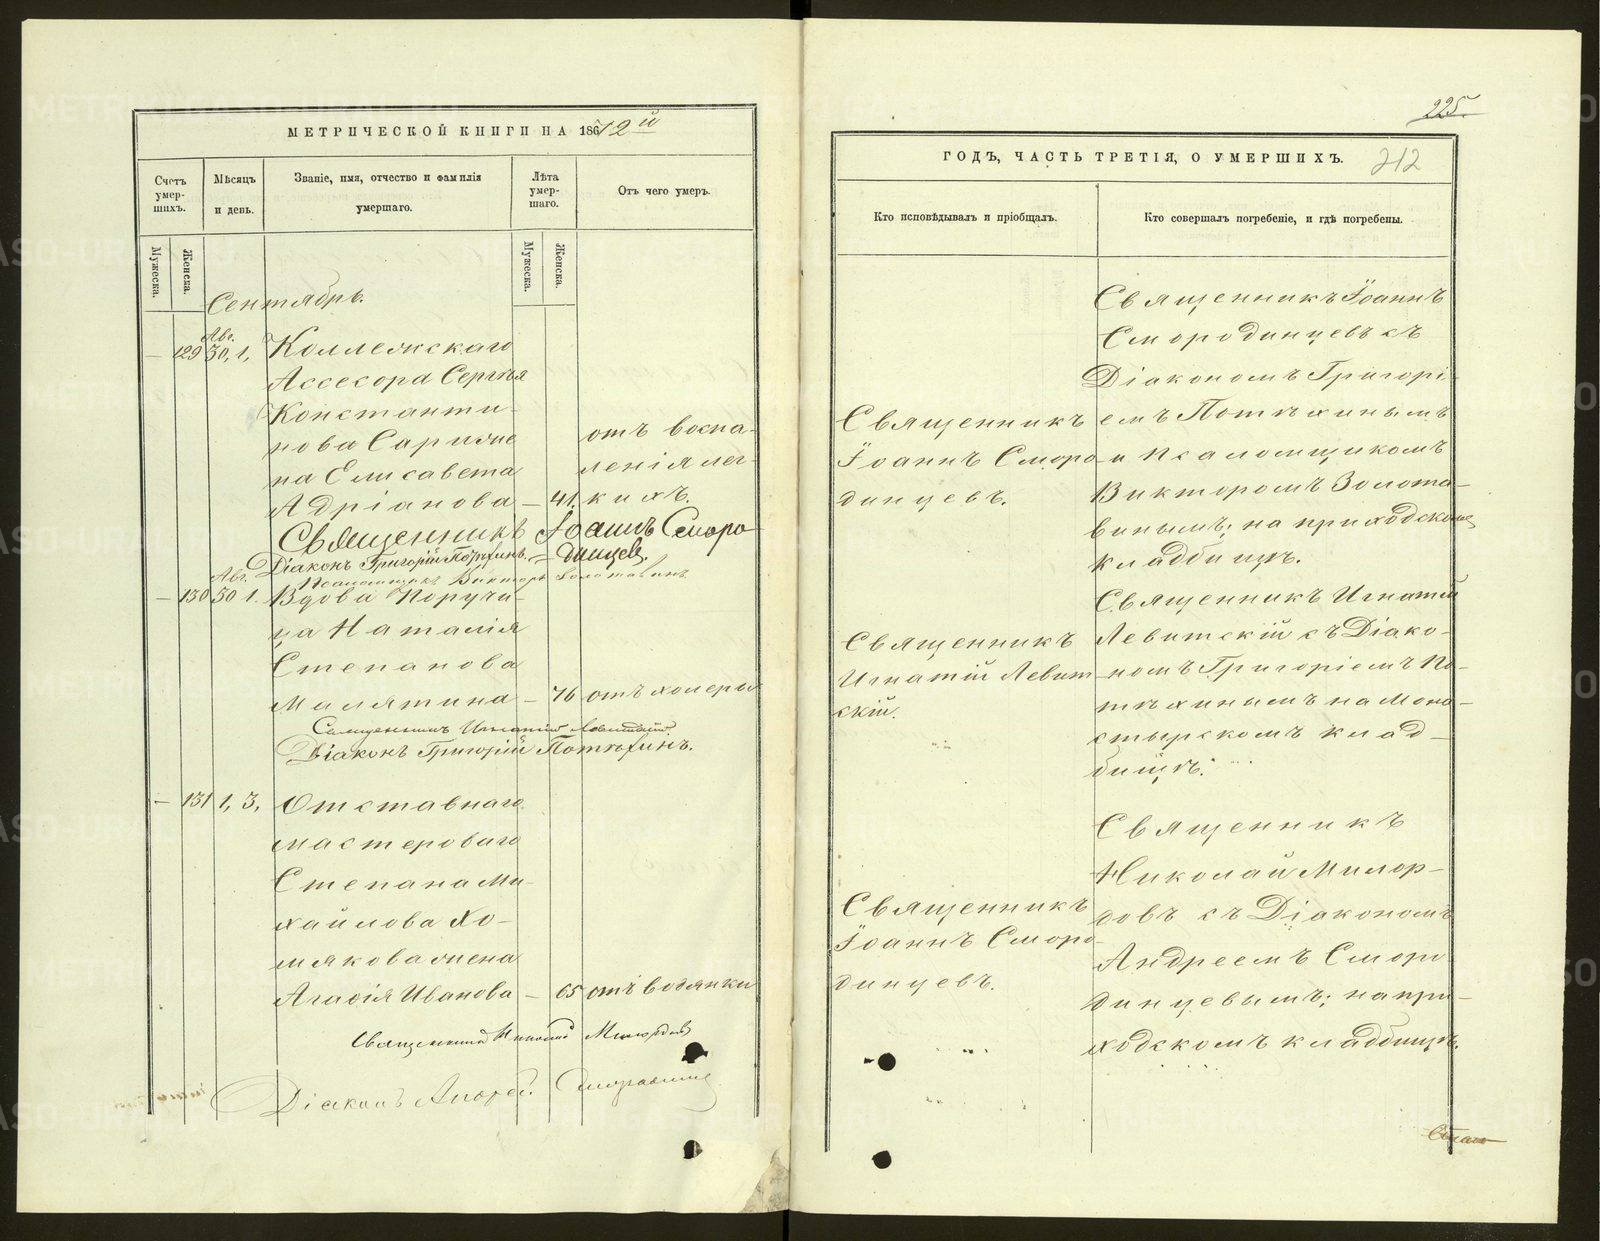 МЕТРИЧЕСКОЙ КНИГИ НА 1872й
Счетъ умерших.
Мѣсяцъ и день.
Званіе, имя, отчество и фамилія умершаго.
Лѣта умершаго.
Отъ чего умеръ.
Мужеска.
Женска.
Мужеска.
Женска.
Сентябрь.
Авг.
— 129 30, 1, Коллежскаго
Ассесора Сергѣя
Константи-
нова Сарина же
на Елисавета
Адріанова — 41.
отъ воспа-
ленія лег-
кихъ.
Священникъ Іоаннъ Сморо
динцевъ.
Діаконъ Григорій Потѣхинъ. —
Псаломщикъ Викторъ Золотавинъ
Авг.
— 130 30 1. Вдова Поручи-
ца Наталія
Степанова
Малятина — 76 отъ холеры
Священникъ Игнатій Левитскій
Діаконъ Григорій Потѣхинъ.
— 131 1, 3, Отставнаго
мастероваго
Степана Ми-
хайлова Хо-
мякова жена
Агафія Иванова — 65 отъ водянки
Священникъ Николай Милордовъ
Діаконъ Андрей
225.
ГОДЪ, ЧАСТЬ ТРЕТІЯ, О УМЕРШИХЪ. 212
Кто исповѣдывалъ и пріобщалъ.
Кто совершалъ погребеніе, и гдѣ погребены.
Священникъ
Іоаннъ Сморо
динцевъ.
Священникъ Іоаннъ
Смородинцевъ съ
Діакономъ Григорі-
емъ Потѣхинымъ
и Псаломщикомъ
Викторомъ Золота-
винымъ; на приходском
кладбищѣ.
Священникъ
Игнатій Левит
скій.
Священникъ Игнатій
Левитскій съ Діако-
номъ Григоріемъ По-
тѣхинымъ на Мона-
стырскомъ клад-
бищѣ.
Священникъ
Іоаннъ Сморо-
динцевъ.
Священникъ
Николай Милор-
довъ съ Діакономъ
Андреемъ Сморо
динцевымъ; на при-
ходскомъ кладбищѣ.